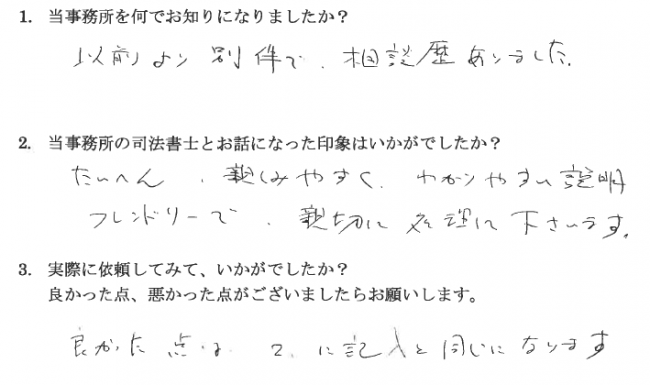 1. 当事務所を何でお知りになりましたか？
以前より別件で、相談歴ありました。
2. 当事務所の司法書士とお話になった印象はいかがでしたか？
たいへん、親しみやすく、わかりやすい説明
フレンドリーで、親切に処理に下さいます。
3. 実際に依頼してみて、いかがでしたか？
良かった点、悪かった点がございましたらお願いします。
良かった点は 2. に記入と同じになります